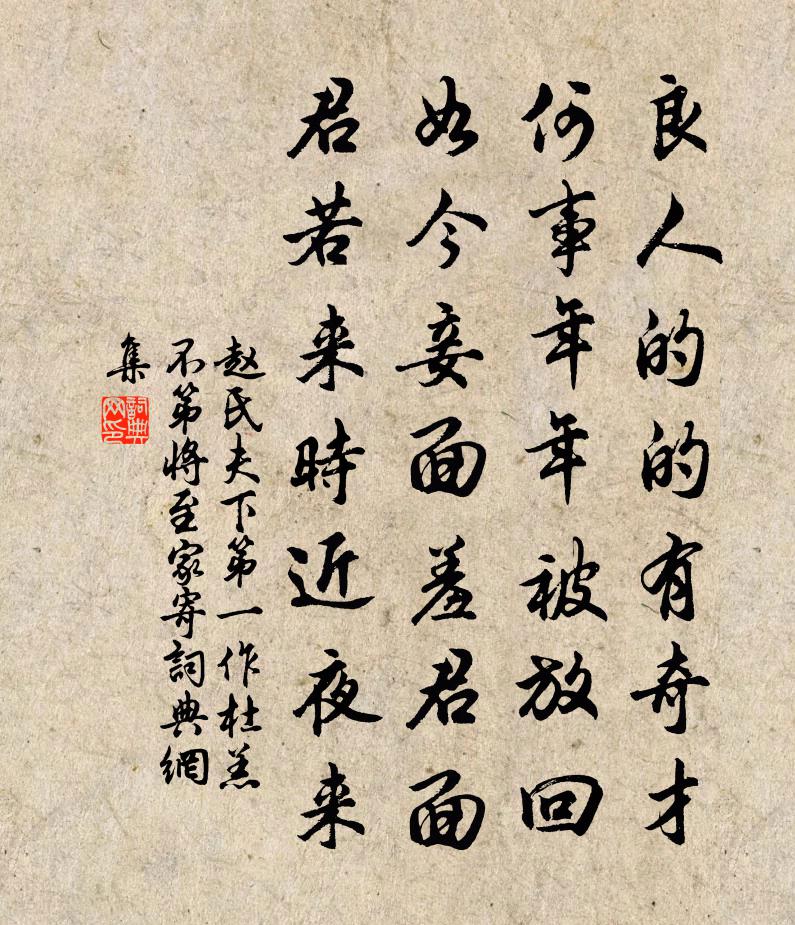 良人的的有奇才
何事年年被放回
如今妾面羞君面
君若来時近夜来
赵氏夫下第一作杜羔
不第将至家寄詞典網
集
詞典
网印